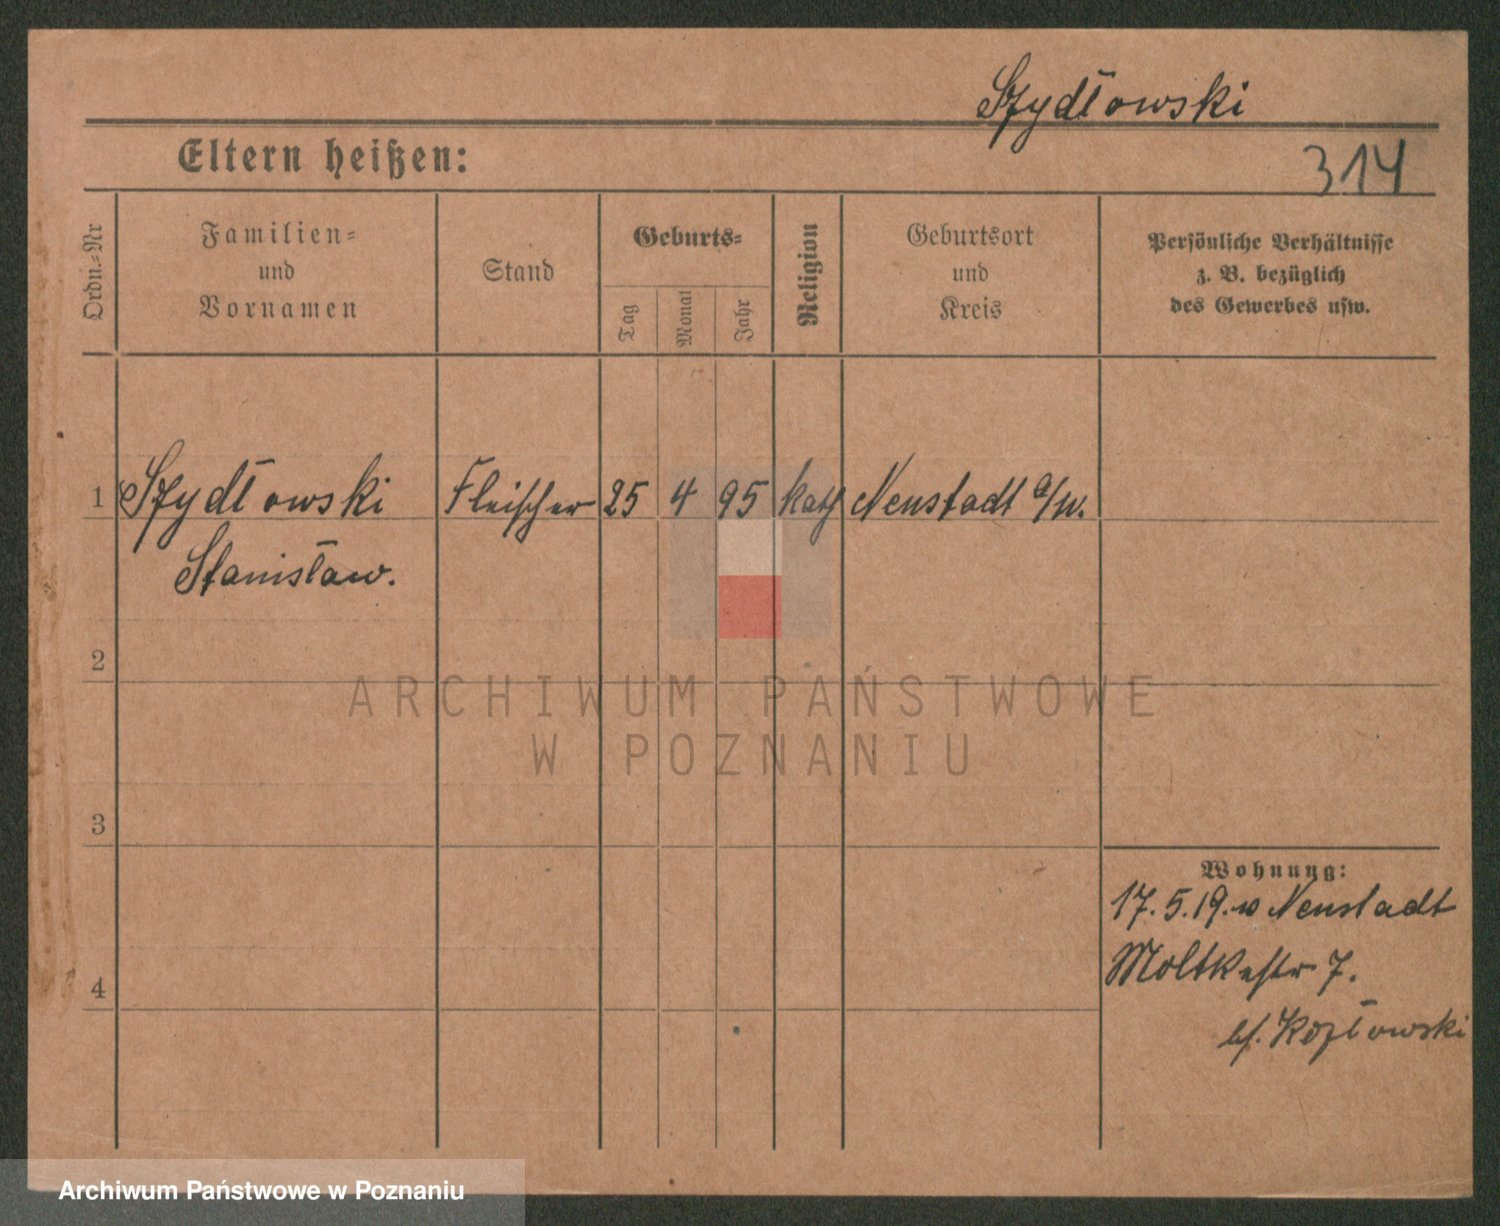 Szydłowski
Eltern heißen:
314
Ordn.=Nr
Familien=
und
Vornamen
Stand
Geburts=
Tag
Monat
Jahr
Religion
Geburtsort
und
Kreis
Persönliche Verhältnisse
z. B. bezüglich
des Gewerbes usw.
1 Szydłowski Fleischer 25 4 95 kath Neustadt a/W.
Stanisław.
2
3
4
Wohnung:
17.5.19. Neustadt
Moltkestr 7.
Kozłowski
ARCHIWUM PAŃSTWOWE
W POZNANIU
Archiwum Państwowe w Poznaniu